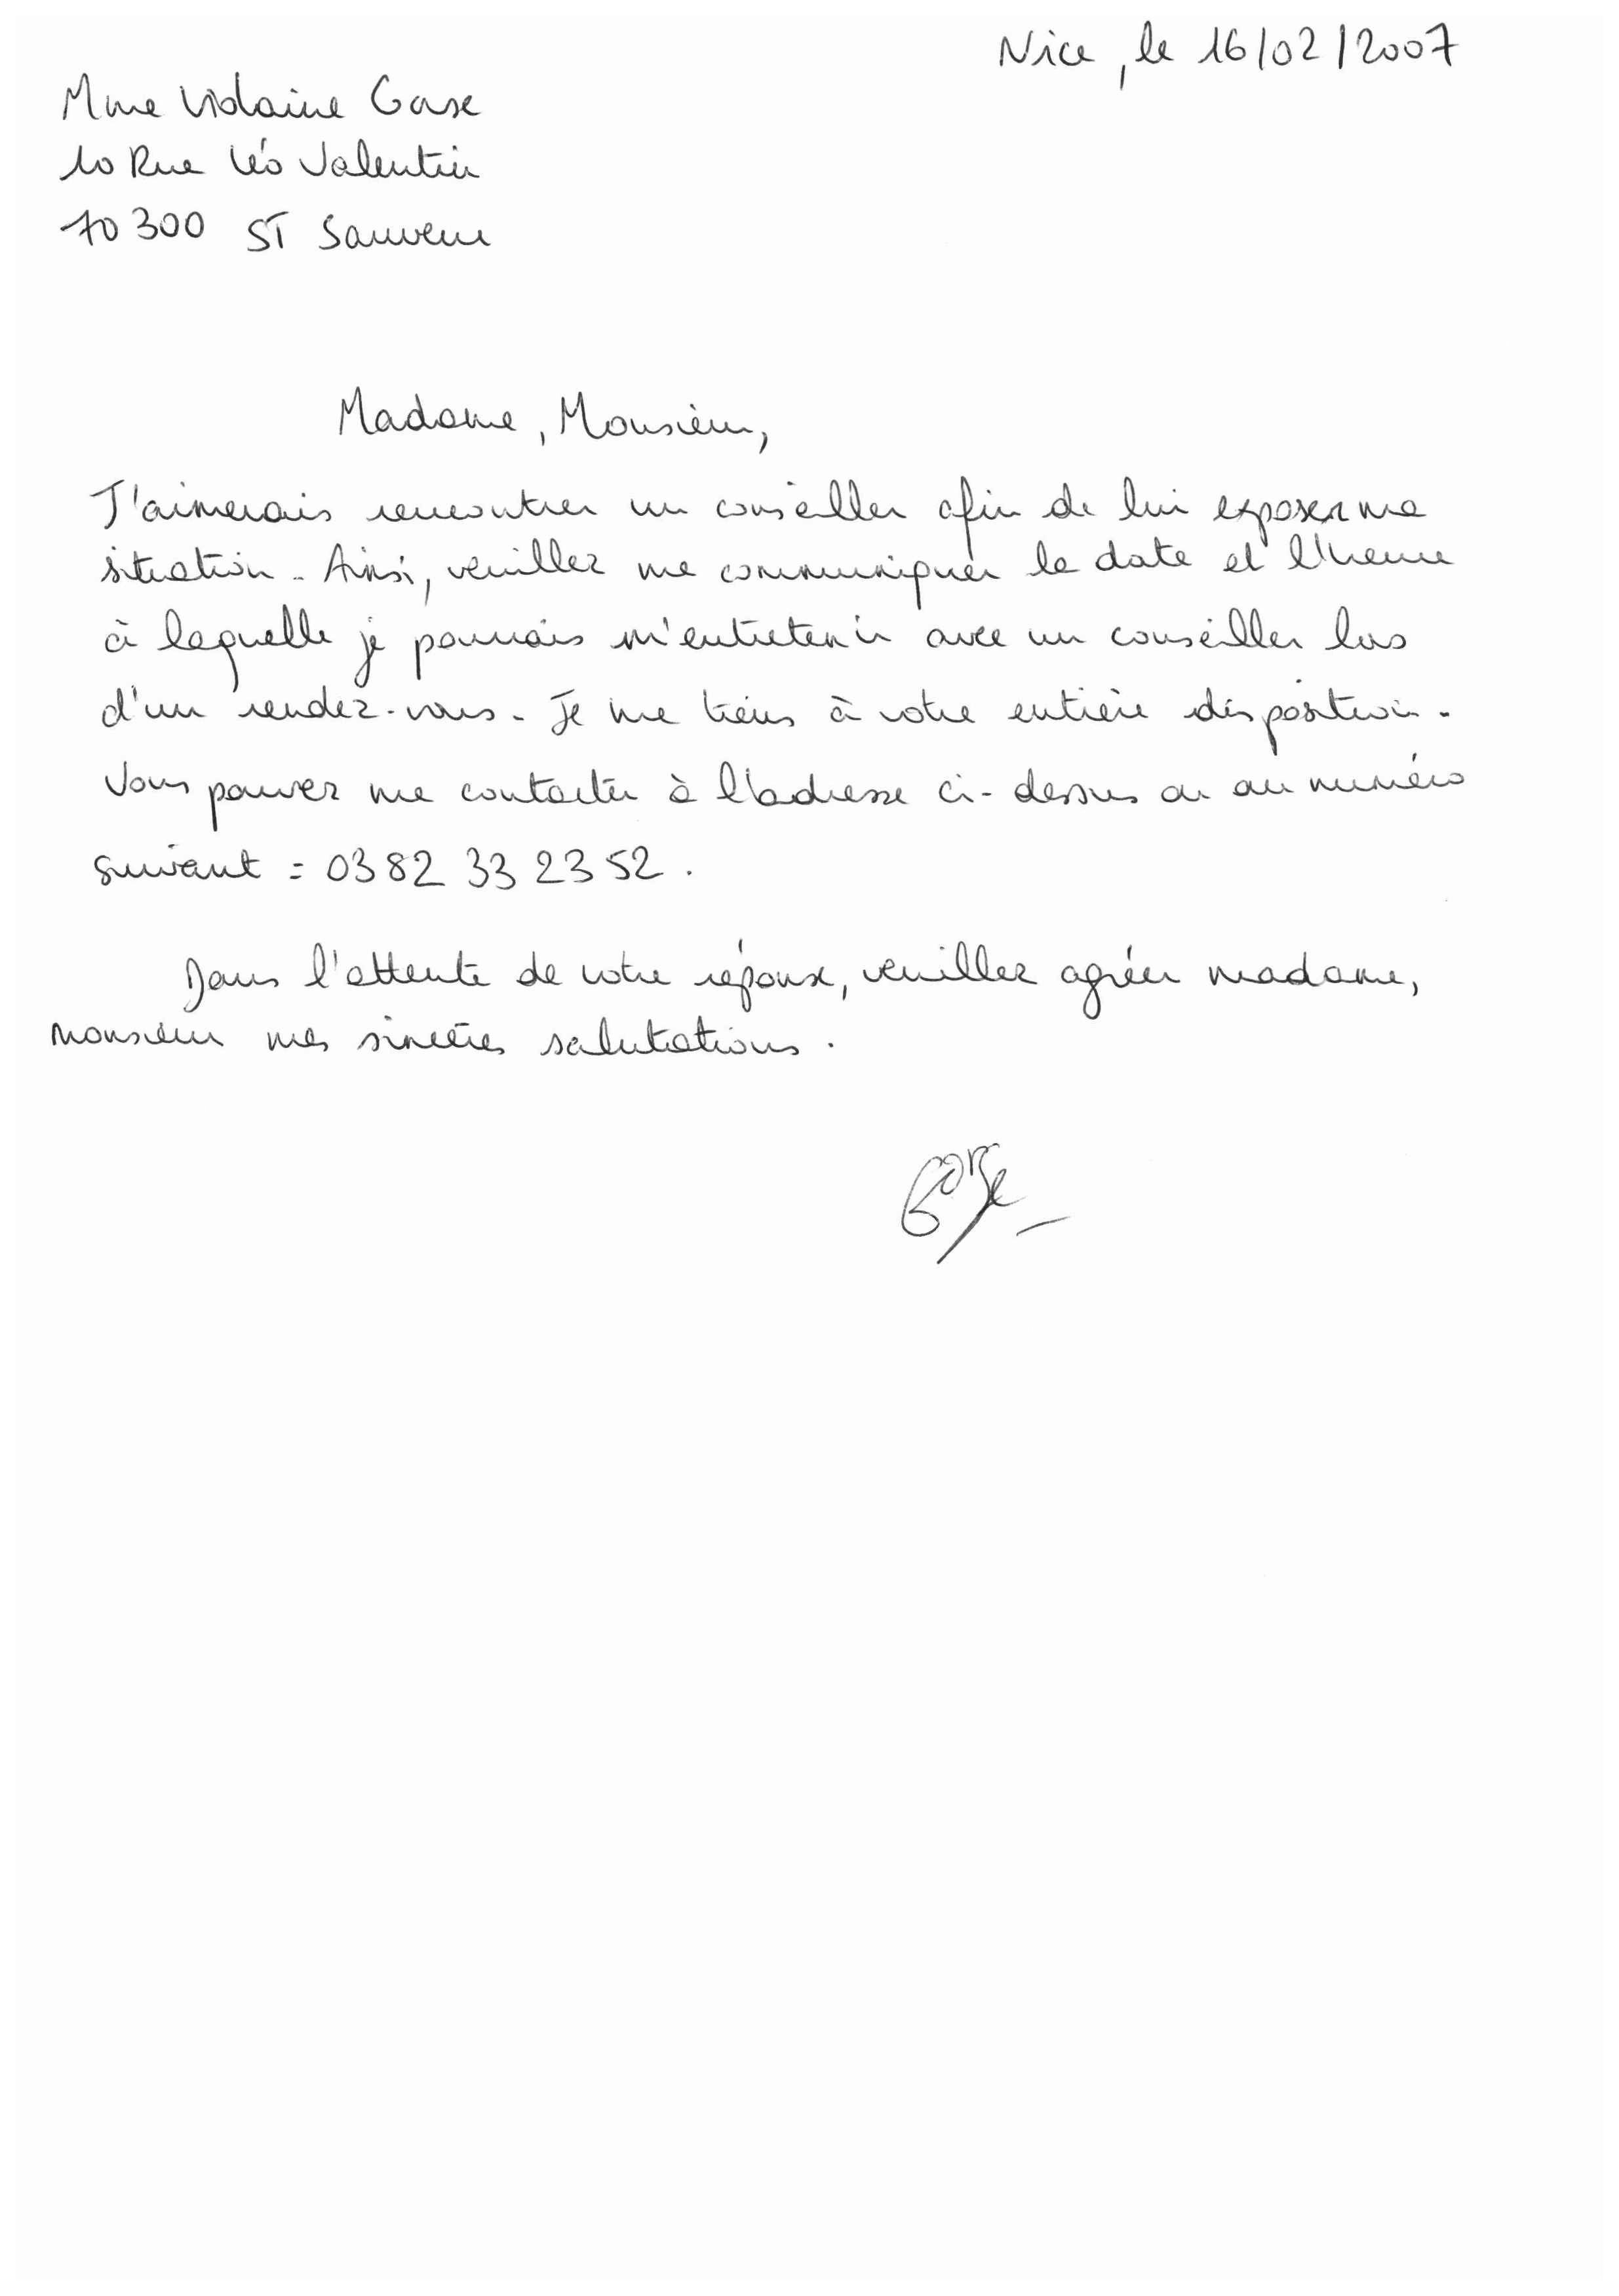 Nice, le 16/02/2007
Mme Violaine Gorse
10 Rue Léo Valentin
70300 ST Sauveur
Madame, Monsieur,
J'aimerais rencontrer un conseiller afin de lui exposer ma
situation. Ainsi, veuillez me communiquer la date et l'heure
à laquelle je pourrais m'entretenir avec un conseiller lors
d'un rendez-vous. Je me tiens à votre entière disposition.
Vous pouvez me contacter à l'adresse ci-dessus ou au numéro
suivant : 03 82 33 23 52.
Dans l'attente de votre réponse, veuillez agréer madame,
monsieur mes sincères salutations.
Gorse